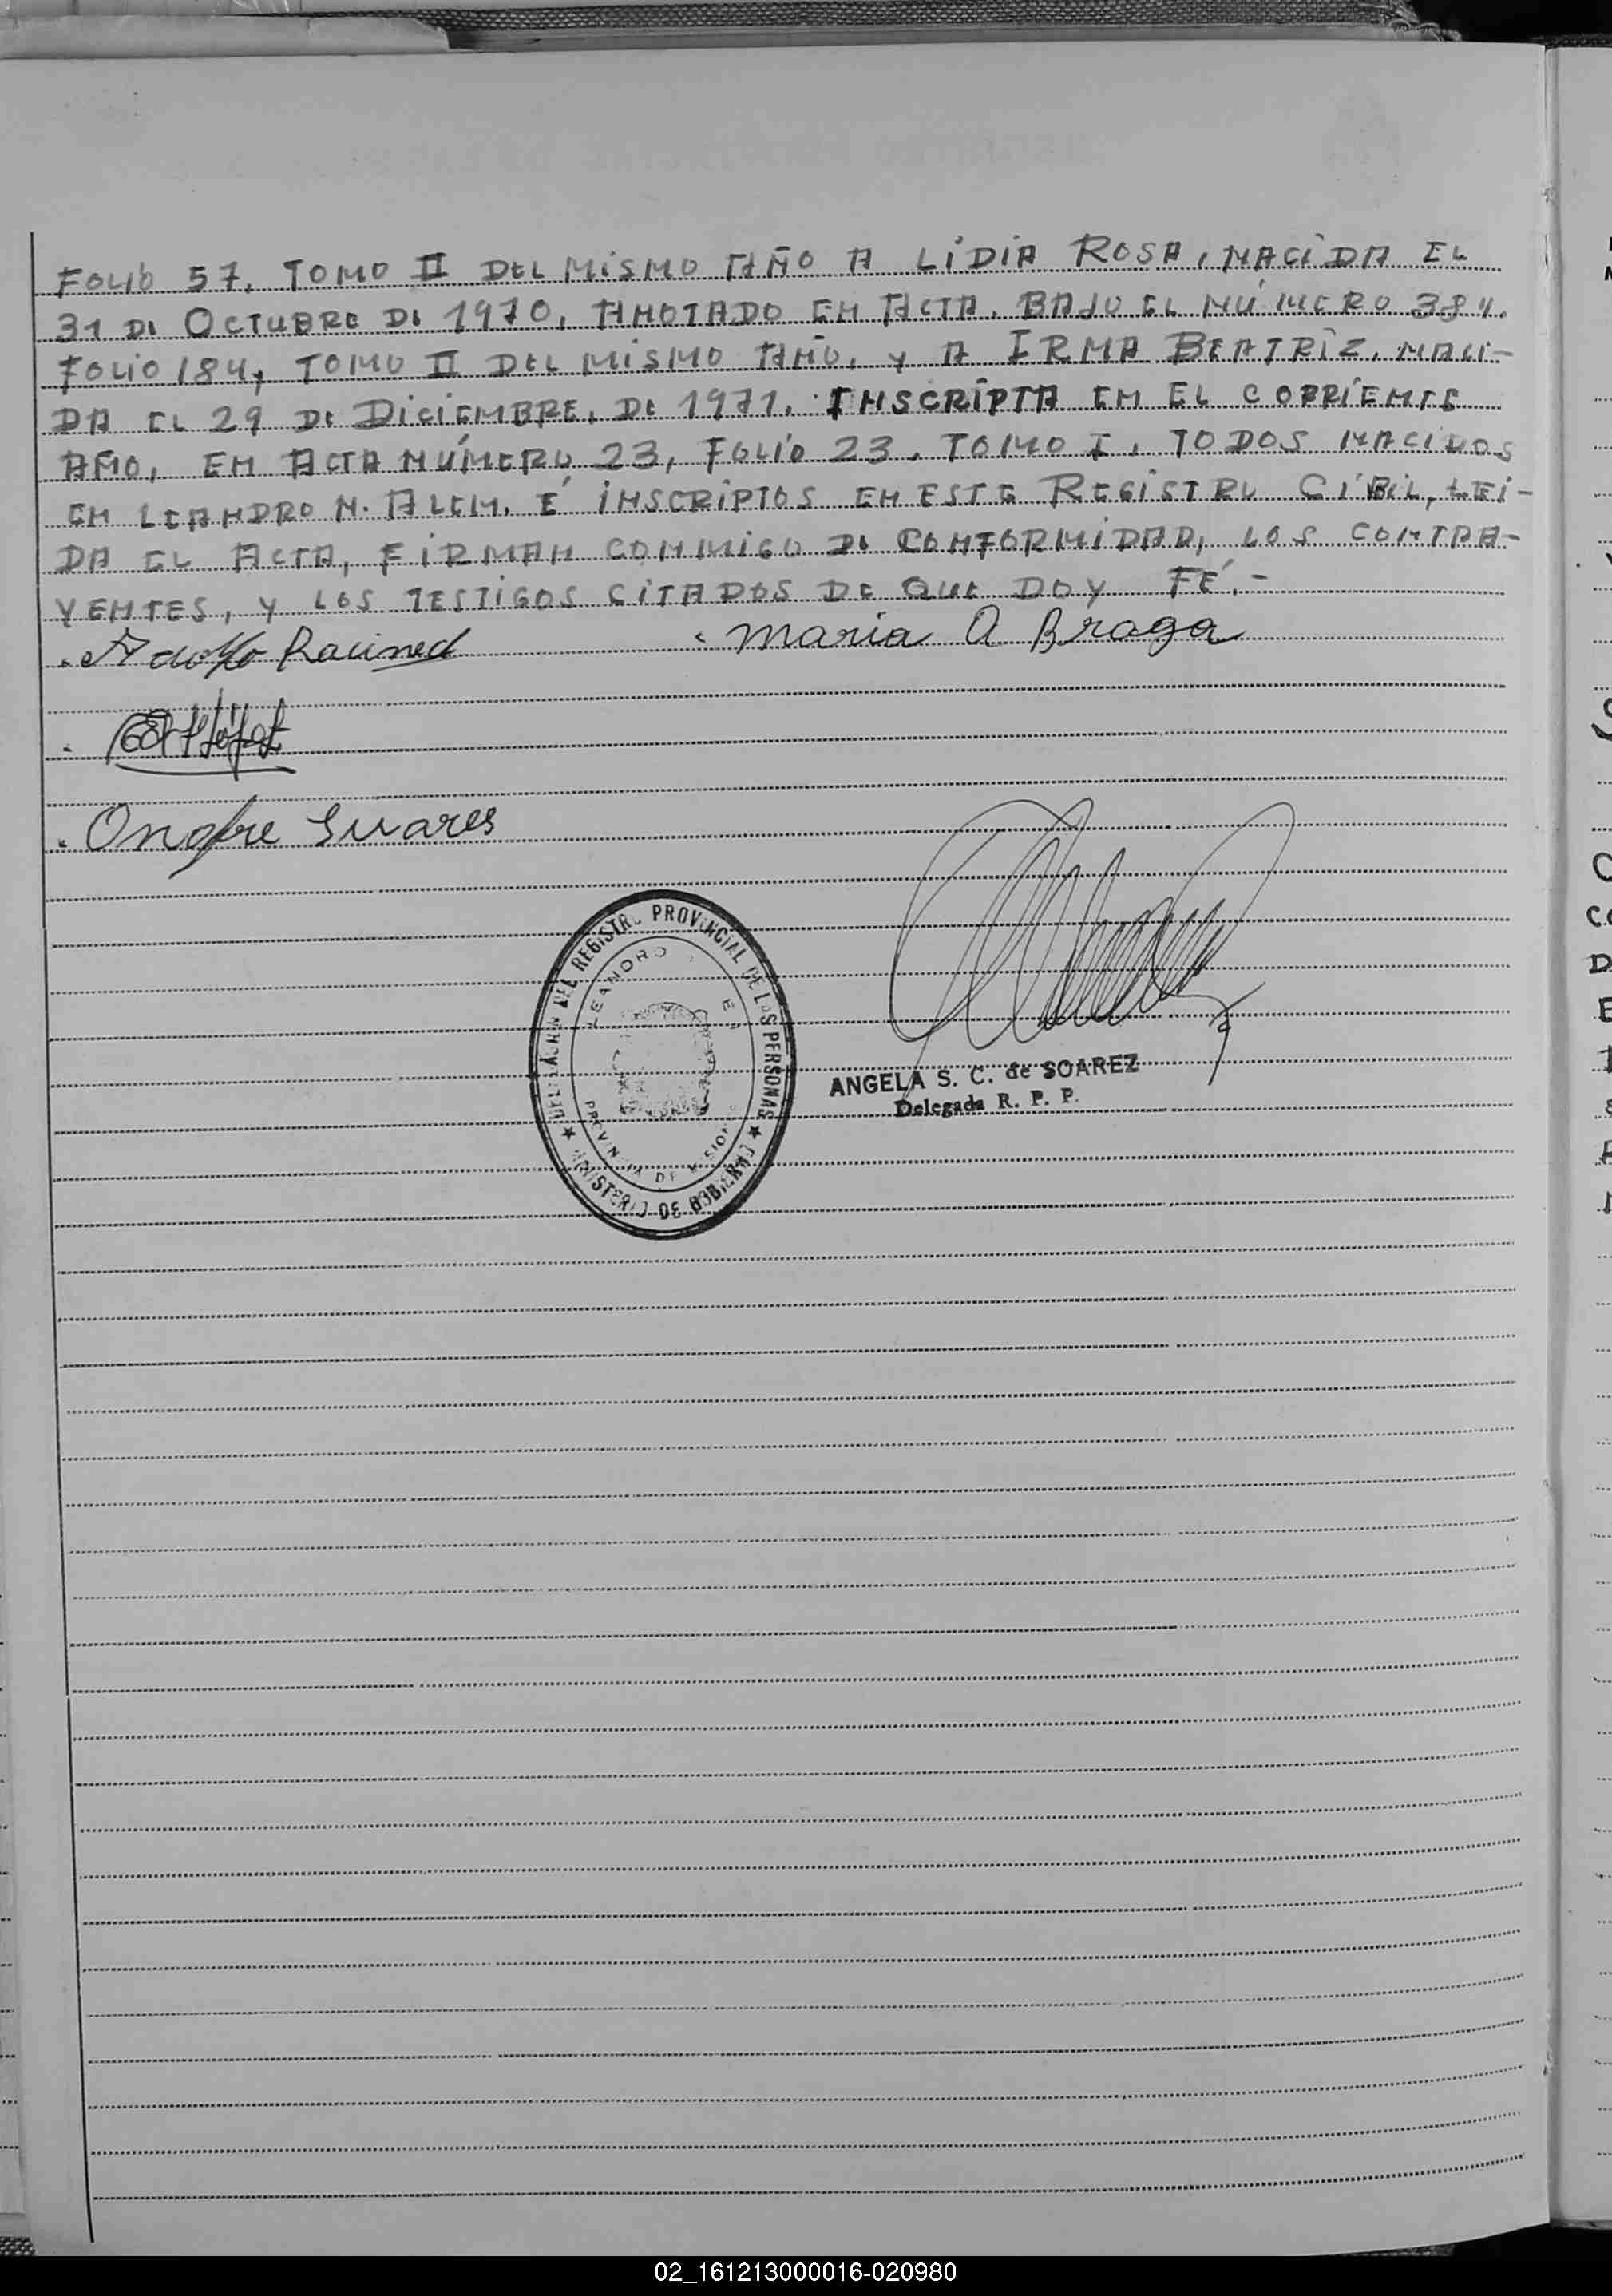 FOLIO 57, TOMO II DEL MISMO AÑO A LIDIA ROSA, NACIDA EL
31 DE OCTUBRE DE 1970, ANOTADO EN ACTA, BAJO EL NÚMERO 384,
FOLIO 184, TOMO II DEL MISMO AÑO, Y A IRMA BEATRIZ, NACI-
DA EL 29 DE DICIEMBRE, DE 1971, INSCRIPTA EN EL CORRIENTE
AÑO, EN ACTA NÚMERO 23, FOLIO 23, TOMO I, TODOS NACIDOS
EN LEANDRO N. ALEM, É INSCRIPTOS EN ESTE REGISTRO CÍBIL, LEÍ-
DA EL ACTA, FIRMAN CONMIGO DE CONFORMIDAD, LOS CONTRA-
YENTES, Y LOS TESTIGOS CITADOS DE QUE DOY FÉ.-
Adolfo
Maria A Braga
Onofre Suares
DEL REGISTRO PROVINCIAL DE LAS PERSONAS
LEANDRO
PROVINCIA DE MISIONES
MINISTERIO DE GOBIERNO
ANGELA S. C. de SOAREZ
Delegada R. P. P.
02_161213000016-020980